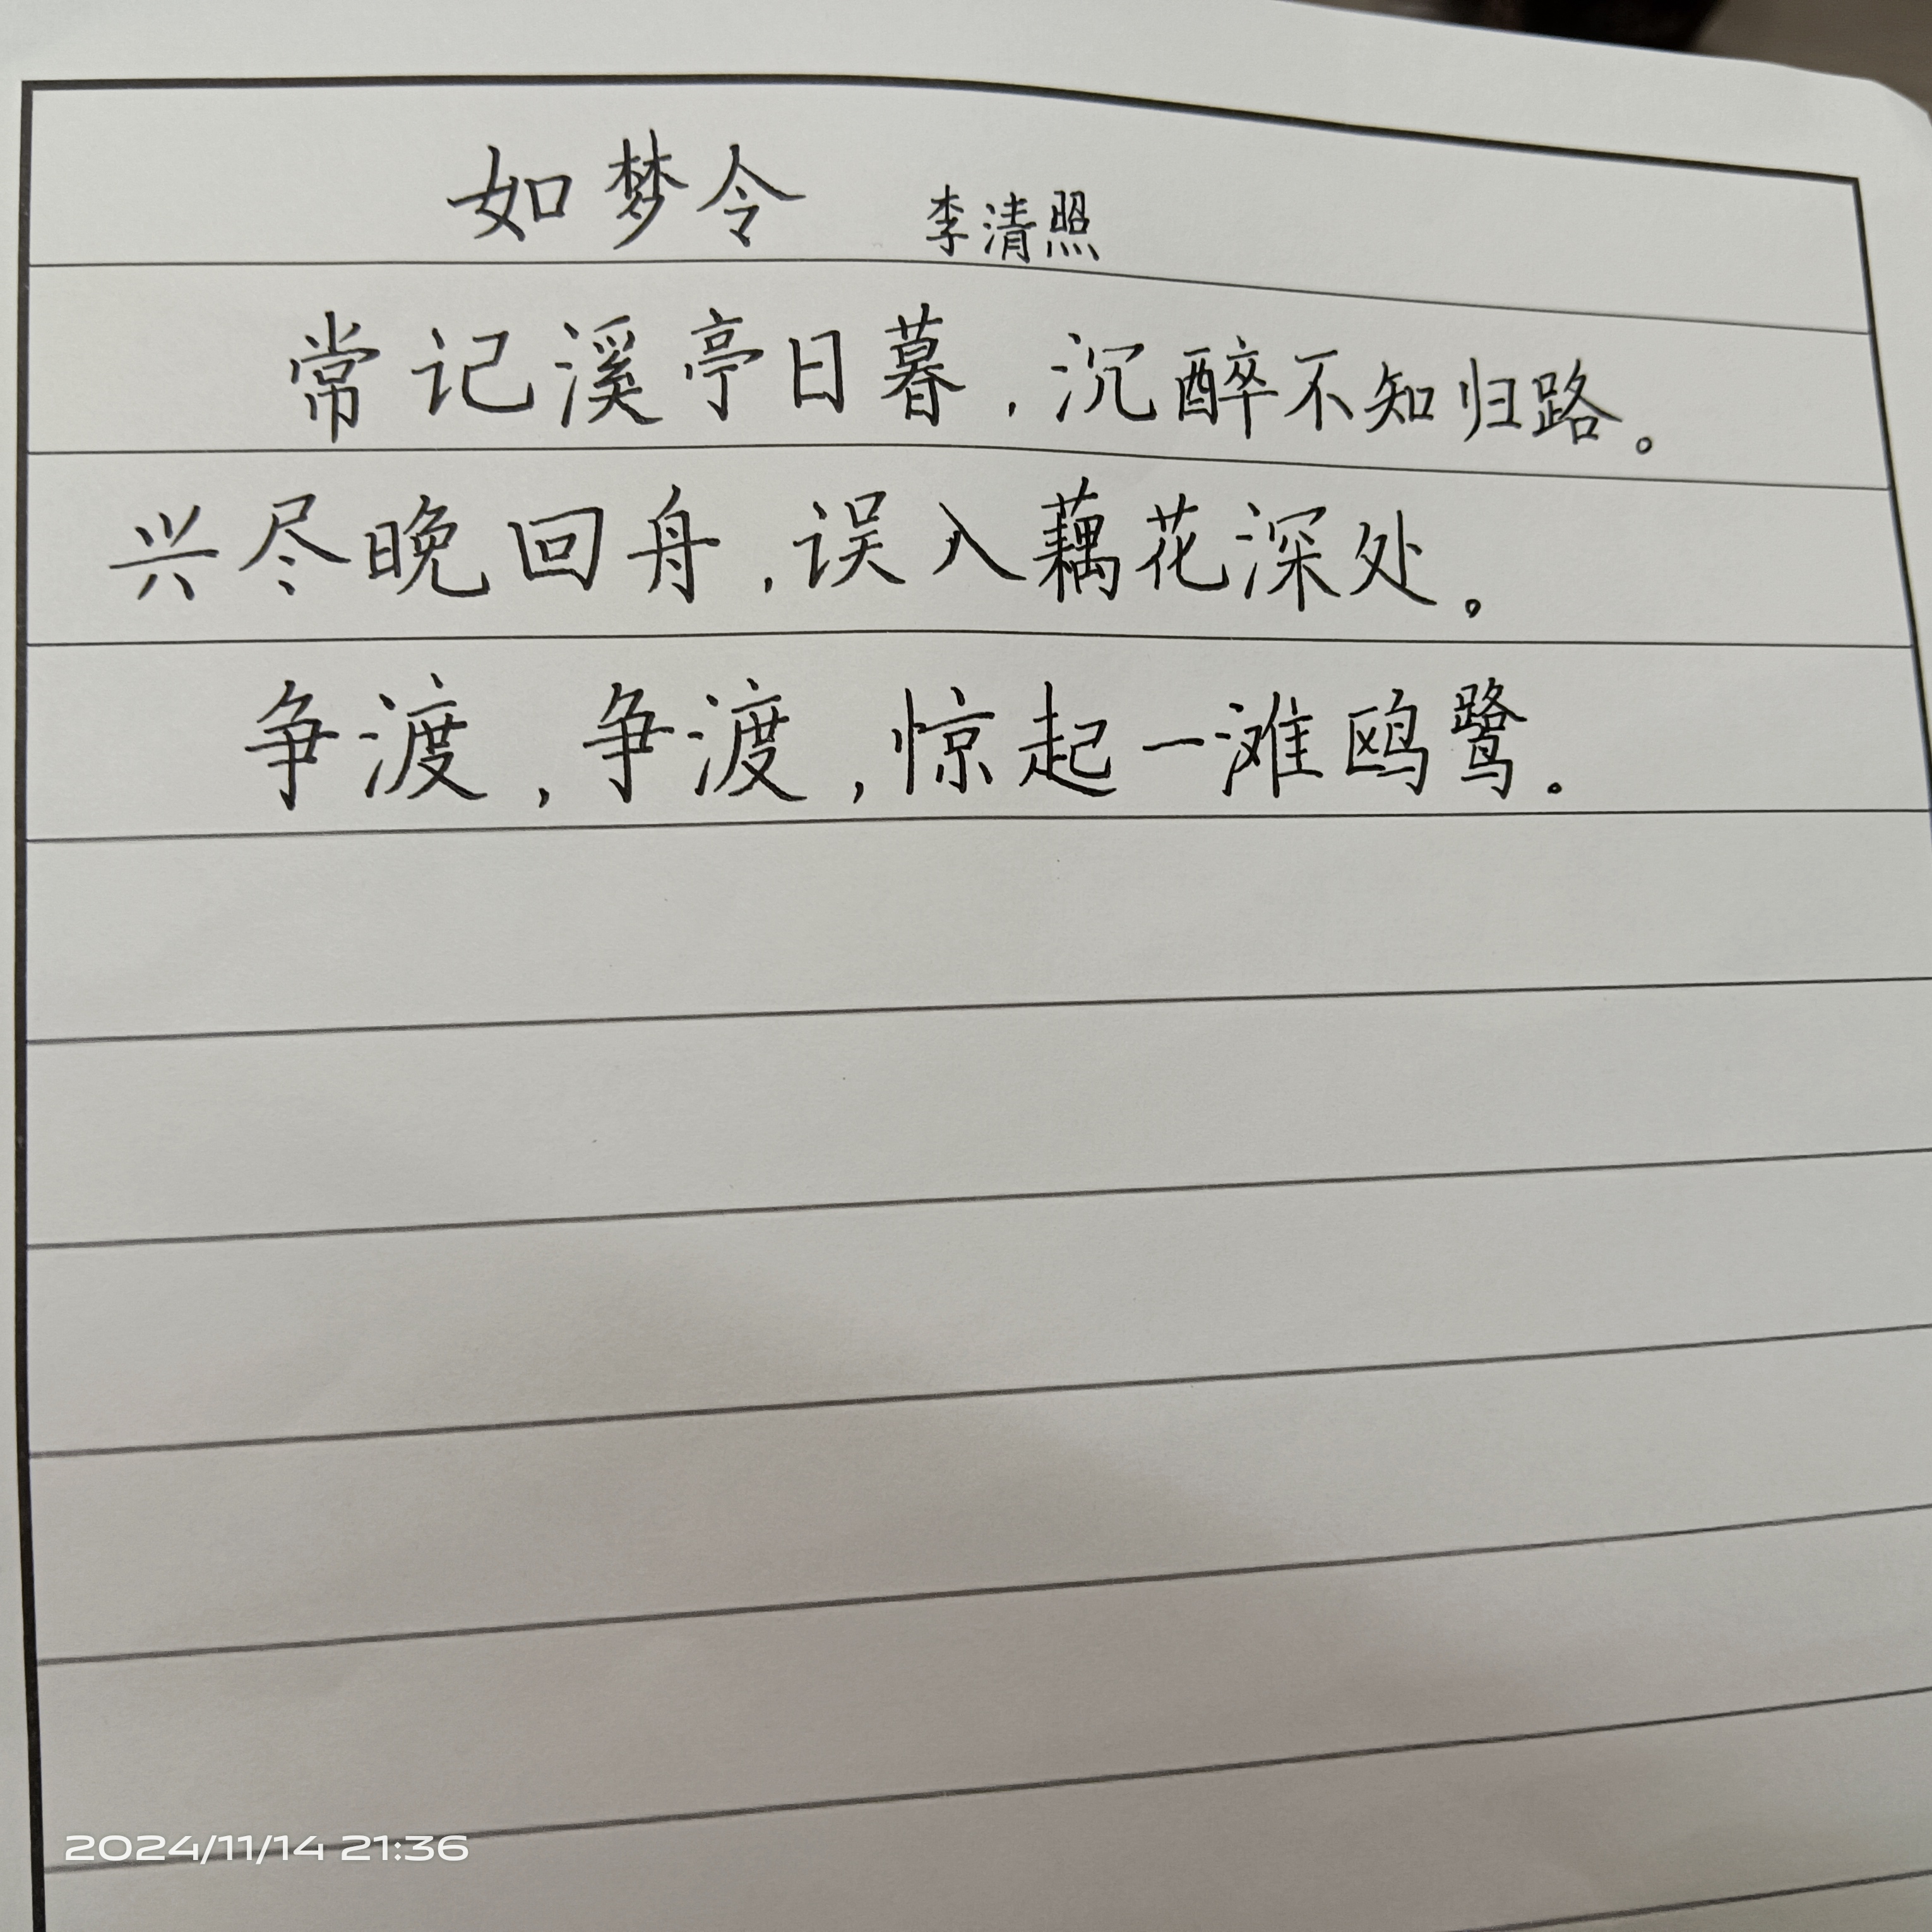 如梦令 李清照
常记溪亭日暮,沉醉不知归路。
兴尽晚回舟,误入藕花深处。
争渡,争渡,惊起一滩鸥鹭。
2024/11/14 21:36